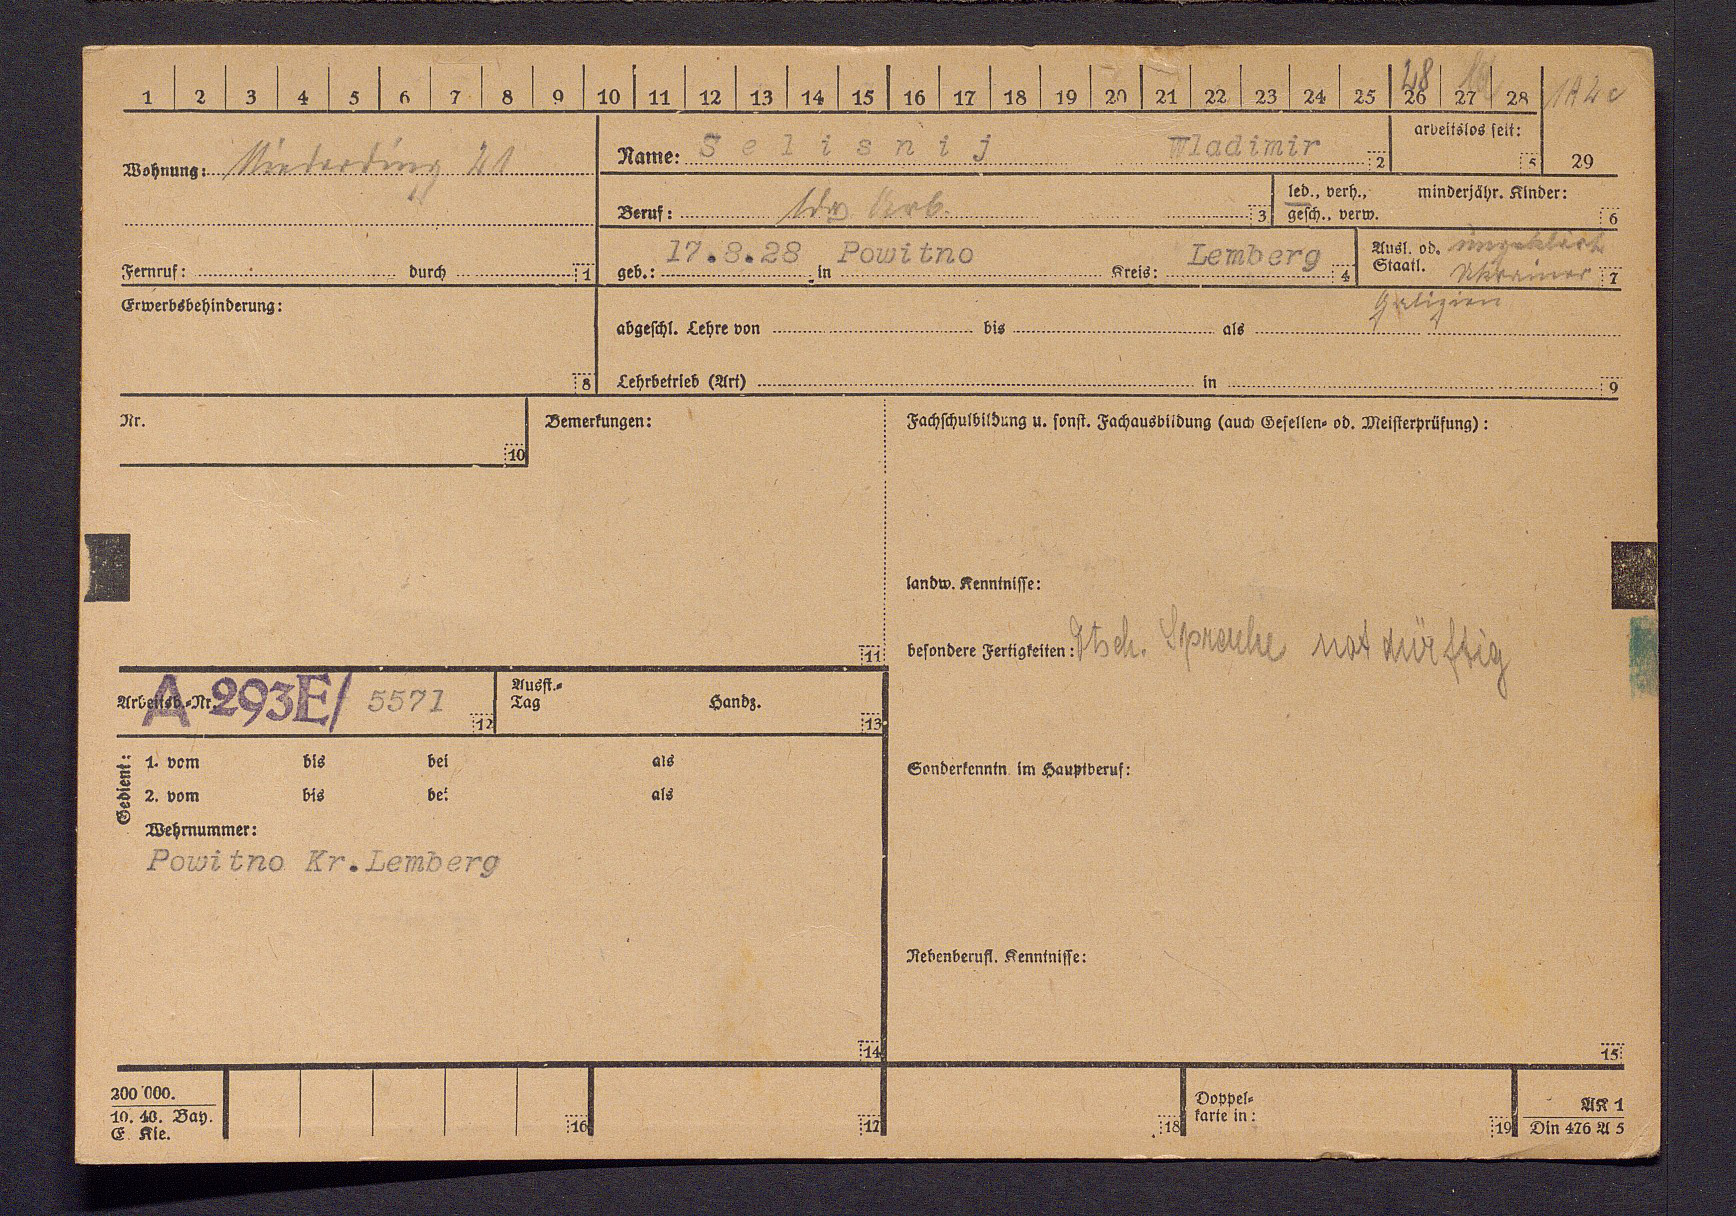 1 2 3 4 5 6 7 8 9 10 11 12 13 14 15 16 17 18 19 20 21 22 23 24 25 26 27 28
48
1A4c
Wohnung: Niederding 21
Name: Selisnij Wladimir 2
arbeitslos seit: 5
29
Beruf: ldw Arb. 3
led., verh., gesch., verw.
minderjähr. Kinder: 6
Fernruf: durch 1
geb.: 17.8.28 in Powitno Kreis: Lemberg 4
Ausl. od. Staatl. ungeklärt Ukrainer 7
Galizien
Erwerbsbehinderung: 8
abgeschl. Lehre von bis als
Lehrbetrieb (Art) in 9
Nr. 10
Bemerkungen: 11
Fachschulbildung u. sonst. Fachausbildung (auch Gesellen- od. Meisterprüfung):
landw. Kenntnisse:
besondere Fertigkeiten: Dtsch. Sprache notdürftig
Arbeitsb.-Nr. A 293E/ 5571 12
Ausst.-Tag Handz. 13
Gedient:
1. vom bis bei als
2. vom bis bei als
Wehrnummer:
Powitno Kr.Lemberg
14
Sonderkenntn. im Hauptberuf:
Nebenberufl. Kenntnisse:
15
200 000.
10. 40. Bay.
E. Kle.
16
17
18
Doppel-
karte in: 19
AK 1
Din 476 A 5